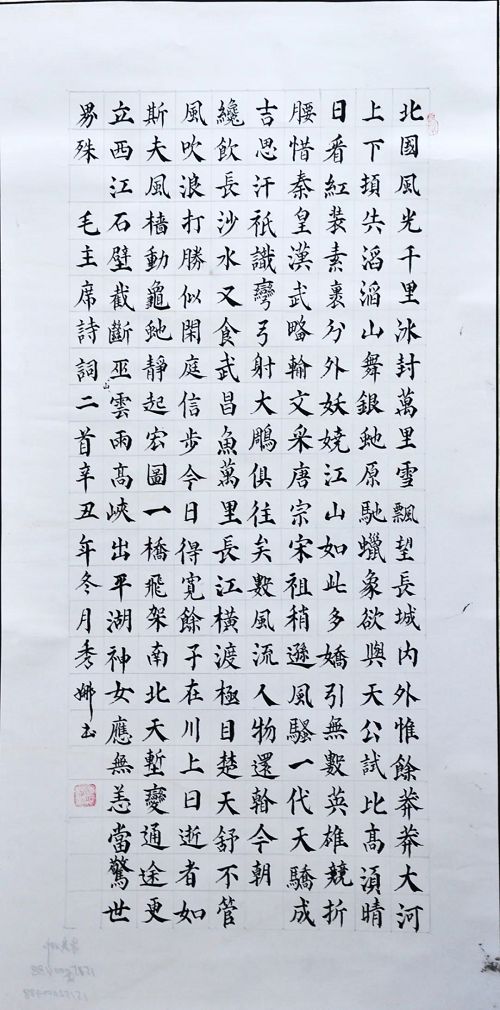 北國風光千里冰封萬里雪飄望長城内外惟餘莽莽大河
上下頓失滔滔山舞銀虵原馳蠟象欲與天公試比高須晴
日看紅裝素裹分外妖嬈江山如此多嬌引無數英雄競折
腰惜秦皇漢武略輸文采唐宗宋祖稍遜風騷一代天驕成
吉思汗祇識彎弓射大鵰俱往矣數風流人物還看今朝
纔飲長沙水又食武昌魚萬里長江橫渡極目楚天舒不管
風吹浪打勝似閑庭信步今日得寬餘子在川上曰逝者如
斯夫風檣動龜虵靜起宏圖一橋飛架南北天塹變通途更
立西江石壁截斷巫山雲雨高峽出平湖神女應無恙當驚世
界殊 毛主席詩詞二首辛丑年冬月秀娜书